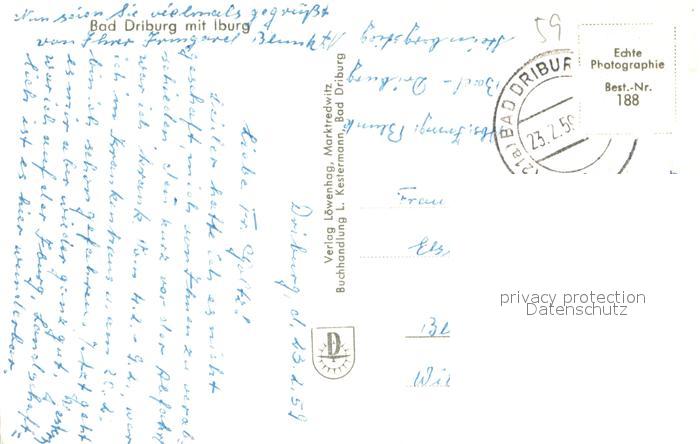 Nun seien Sie vielmals gegrüßt
Bad Driburg mit Iburg
von Ihrer Irmgard Blunk
Driburg, d. 23.2.59
Liebe Fr.
Leider hatte ich es nicht
geschafft, mich von Ihnen zu verab-
schieden, denn kurz vor der Abfahrt
war ich krank. Vom 4.2. - 9.2. war
ich im Krankenhaus u. am
bin ich schon gefahren. Jetzt geht
es mir aber wieder ganz gut.
war ich auf der Iburg. Landschaft-
lich ist es hier wunderbar.
Verlag Löwenhag, Marktredwitz
Buchhandlung L. Kestermann, Bad Driburg
Abs. Irmg. Blunk
Bad - Driburg
59
(21b) BAD DRIBUR
23.2.59
Echte
Photographie
Best.-Nr.
188
Frau
Els
Bl
Wil
privacy protection
Datenschutz